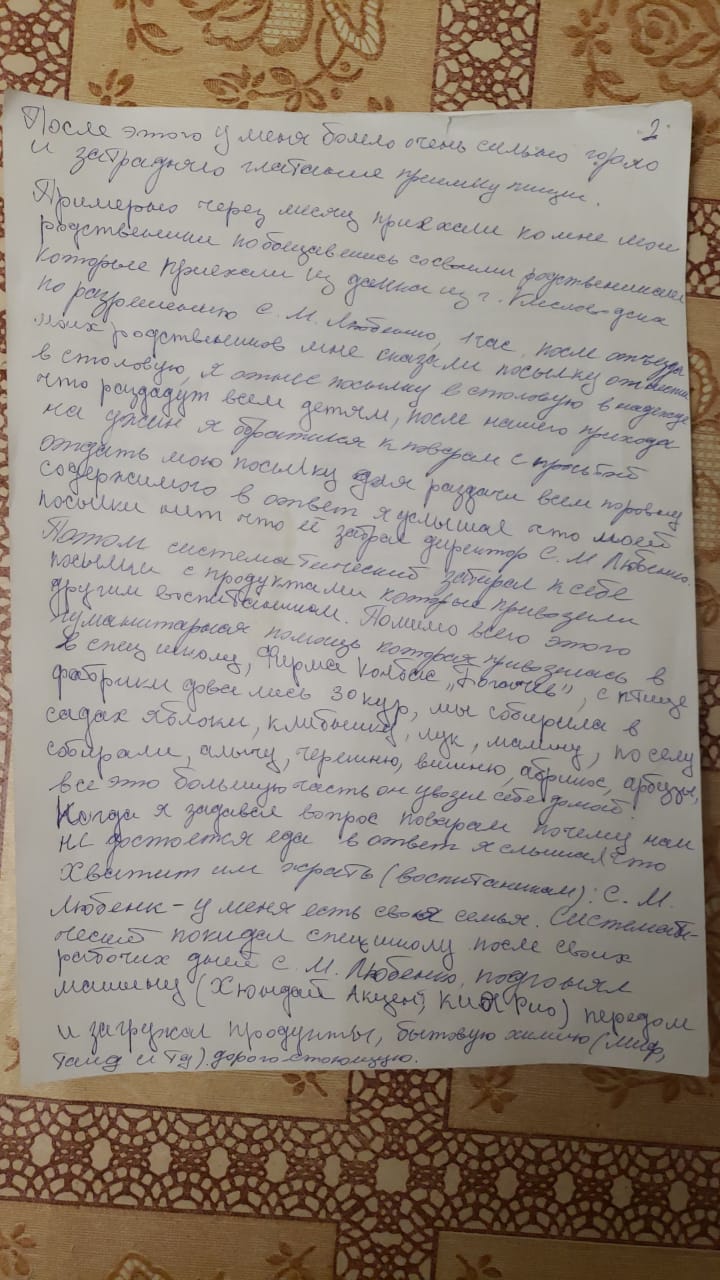 2
После этого у меня болело очень сильно горло
и затрадняло глатание преимку пищи.
Примерно через месяц приехали ко мне мои
родственники пообощавшись со своими родственниками
которые приехали из далика из г. Кисловодска
по разрешению С. М. Любенко, 1 час, после отъезда
моих родственников мне сказали посылку отнести
в столовую, я отнес посылку в столовую в надежде
что раздадут всем детям, после нашего прихода
на ужин я обратился к поварам с просьбой
отдать мою посылку для раздачи всем поровну
содержимого в ответ я услышал что моей
посылки нит что её забрал директор С. М Любенко.
Потом систематический забирал к себе
посылки с продуктами которые привозили
другим воспитанникам. Помимо всего этого
гуманитарная помощь которая привозилась в
в спец школу, Фирма Колбас „Богачев", с птице
фабрики довались 30 кур, мы собирила в
садах яблоки, клибынику, лук, малину, по селу
собирали, алычу, черешню, вишню, абрикос, арбузы,
все это большую часть он увозил себе домой
Когда я задавал вопрос поварам почему нам
не достоется еда в ответ я слышал что
хватит им жрать (воспитанникам): С. М.
Любенк - у меня есть своя семья. Системати-
ческий покидал спецшколу после своих
рабочих дней С. М. Любенко, подгонял
машину (Хюндай Акцент, КИА Рио) передом
и загружал продукты, бытовую химию (миф,
таид и тд). дорого-стоющую.